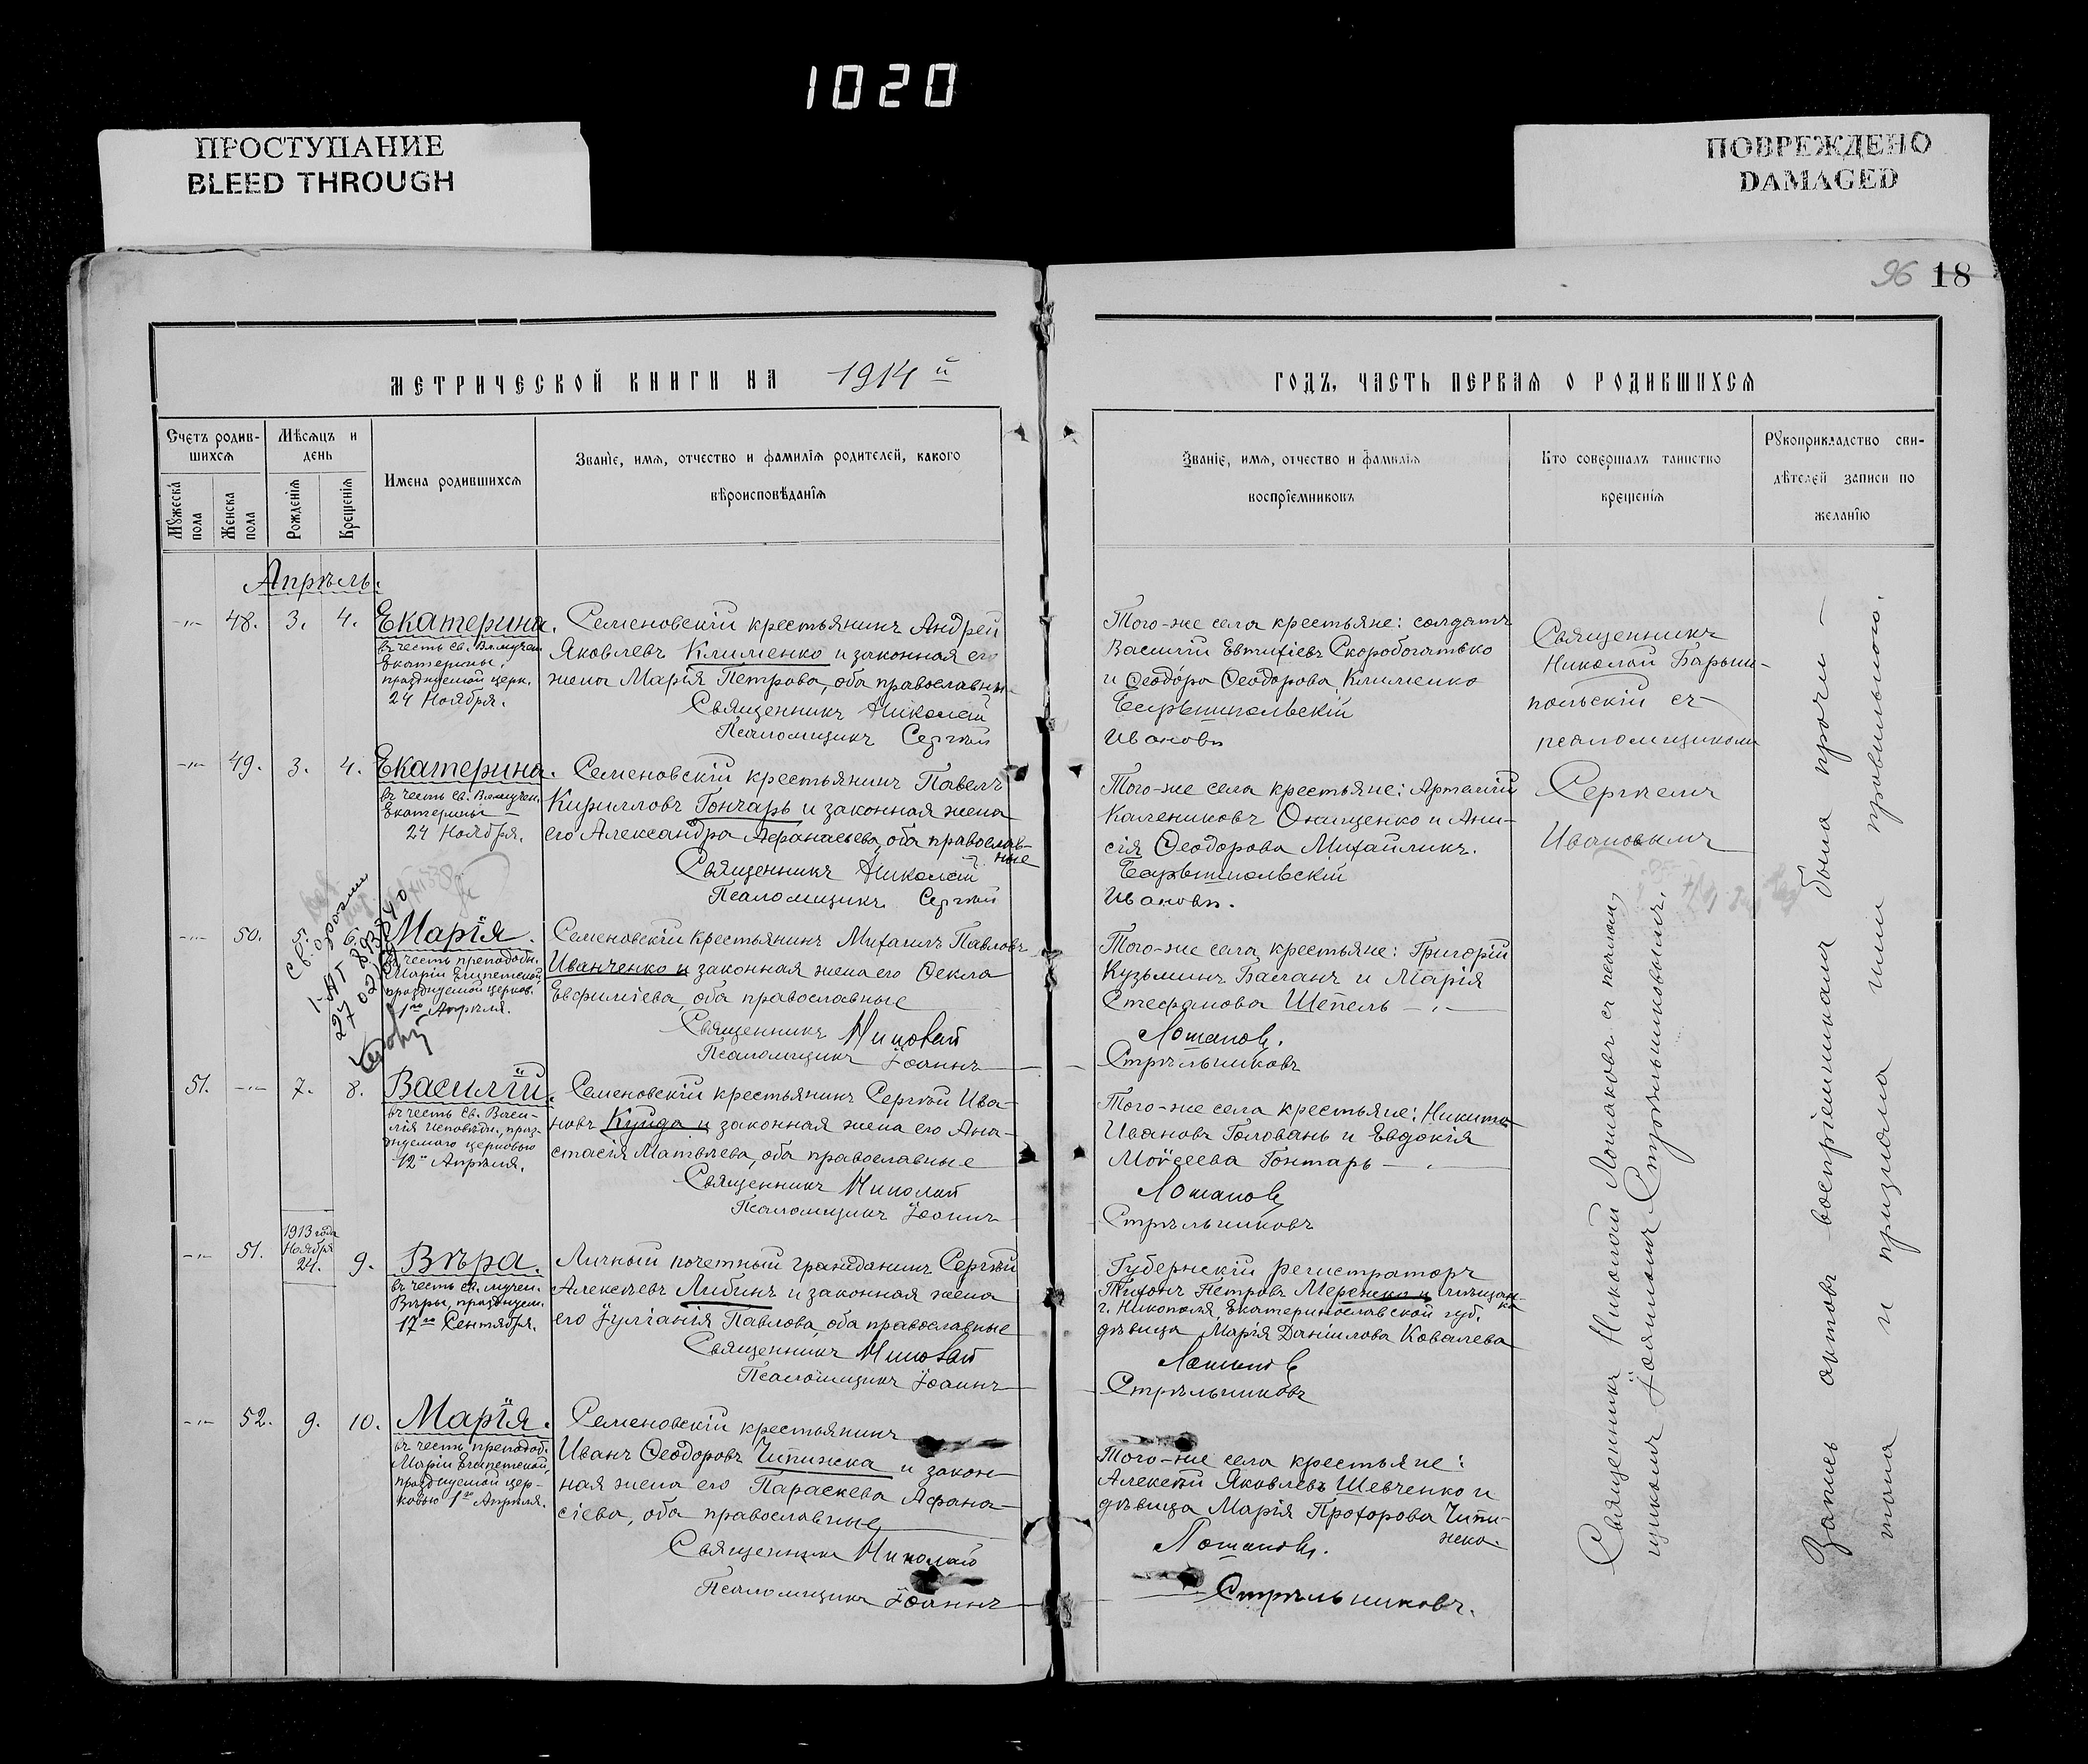 1020
ПРОСТУПАНИЕ
BLEED THROUGH
ПОВРЕЖДЕНО
DAMAGED
96 18
МЕТРИЧЕСКОЙ КНИГИ НА 1914й
ГОДЪ, ЧАСТЬ ПЕРВАЯ О РОДИВШИХСЯ
Счетъ родив-
шихся
Мѣсяцъ и
день
Имена родившихся
Званіе, имя, отчество и фамилія родителей, какого
вѣроисповѣданія
Мужеска
пола
Женска
пола
Рожденія
Крещенія
Званіе, имя, отчество и фамилія
воспріемниковъ
Кто совершалъ таинство
крещенія
Рукоприкладство сви-
дѣтелей записи по
желанію
Апрѣль.
-"- 48. 3. 4. Екатерина.
въ честь св. Вямучен.
Екатерины,
празднуемой церк.
24 Ноября.
Семеновскій крестьянинъ Андрей
Яковлевъ Клименко и законная его
жена Марія Петрова, оба православны
Священникъ Николай
Псаломщикъ Сергѣй
Того-же села крестьяне: солдатъ
Василій Евтихіевъ Скоробогатько
и Ѳеодора Ѳеодорова Клименко
Барышпольскій
Ивановъ
-"- 49. 3. 4. Екатерина.
въ честь св. Вямучен.
Екатерины
24 Ноября.
Семеновскій крестьянинъ Павелъ
Кирилловъ Гончаръ и законная жена
его Александра Аѳанасьева, оба православ-
ные
Священникъ Николай
Псаломщикъ Сергѣй
Того-же села крестьяне: Артемій
Калениковъ Онищенко и Ани-
сія Ѳеодорова Михайликъ.
Барышпольскій
Ивановъ.
Священникъ
Николай Барыш-
польскій съ
псаломщикомъ
Сергѣемъ
Ивановымъ
-"- 50. 5. 6. Марія.
въ честь преподобн.
Маріи Египетской,
празднуемой церков.
1го Апрѣля.
Семеновскій крестьянинъ Михаилъ Павловъ
Иванченко и законная жена его Ѳекла
Евфиміева, оба православные
Священникъ Николай
Псаломщикъ Іоаннъ
Того-же села крестьяне: Григорій
Кузьминъ Басанъ и Марія
Стефанова Шепель
Лошаковъ.
Стрѣльниковъ
51. -"- 7. 8. Василій.
въ честь св. Васи-
лія исповѣдн., праз-
днуемаго церковью
12го Апрѣля.
Семеновскій крестьянинъ Сергѣй Ива-
новъ Куйда и законная жена его Ана-
стасія Матвѣева, оба православные
Священникъ Николай
Псаломщикъ Іоаннъ
Того-же села крестьяне: Никита
Ивановъ Головань и Евдокія
Моѵсеева Гонтарь
Лошаковъ
Стрѣльниковъ
1913 года
Ноября
24.
-"- 51. 9. Вѣра.
въ честь св. мучен.
Вѣры, празднуем.
17го Сентября.
Личный почетный гражданинъ Сергѣй
Алексѣевъ Либинъ и законная жена
его Іуліанія Павлова, оба православные
Священникъ Николай
Псаломщикъ Іоаннъ
Губернскій регистраторъ
Тихонъ Петровъ Мережко и мѣщан-
ка
г. Никополя, Екатеринославской губ.
дѣвица Марія Даніилова Ковалева
Лошаковъ
Стрѣльниковъ
-"- 52. 9. 10. Марія.
въ честь преподоб.
Маріи Египетской,
празднуемой цер-
ковью 1го Апрѣля.
Семеновскій крестьянинъ
Иванъ Ѳеодоровъ Чипижка и закон-
ная жена его Параскева Аѳана-
сіева, оба православные
Священникъ Николай
Псаломщикъ Іоаннъ
Того-же села крестьяне:
Алексѣй Яковлевъ Шевченко и
дѣвица Марія Прохорова Чипи-
жка.
Лошаковъ.
Стрѣльниковъ.
Священникъ Николай Лошаковъ съ псалом-
щикомъ Іоанномъ Стрѣльниковымъ.
Запись актовъ воспріемниками была прочи-
тана и признана ими правильною.